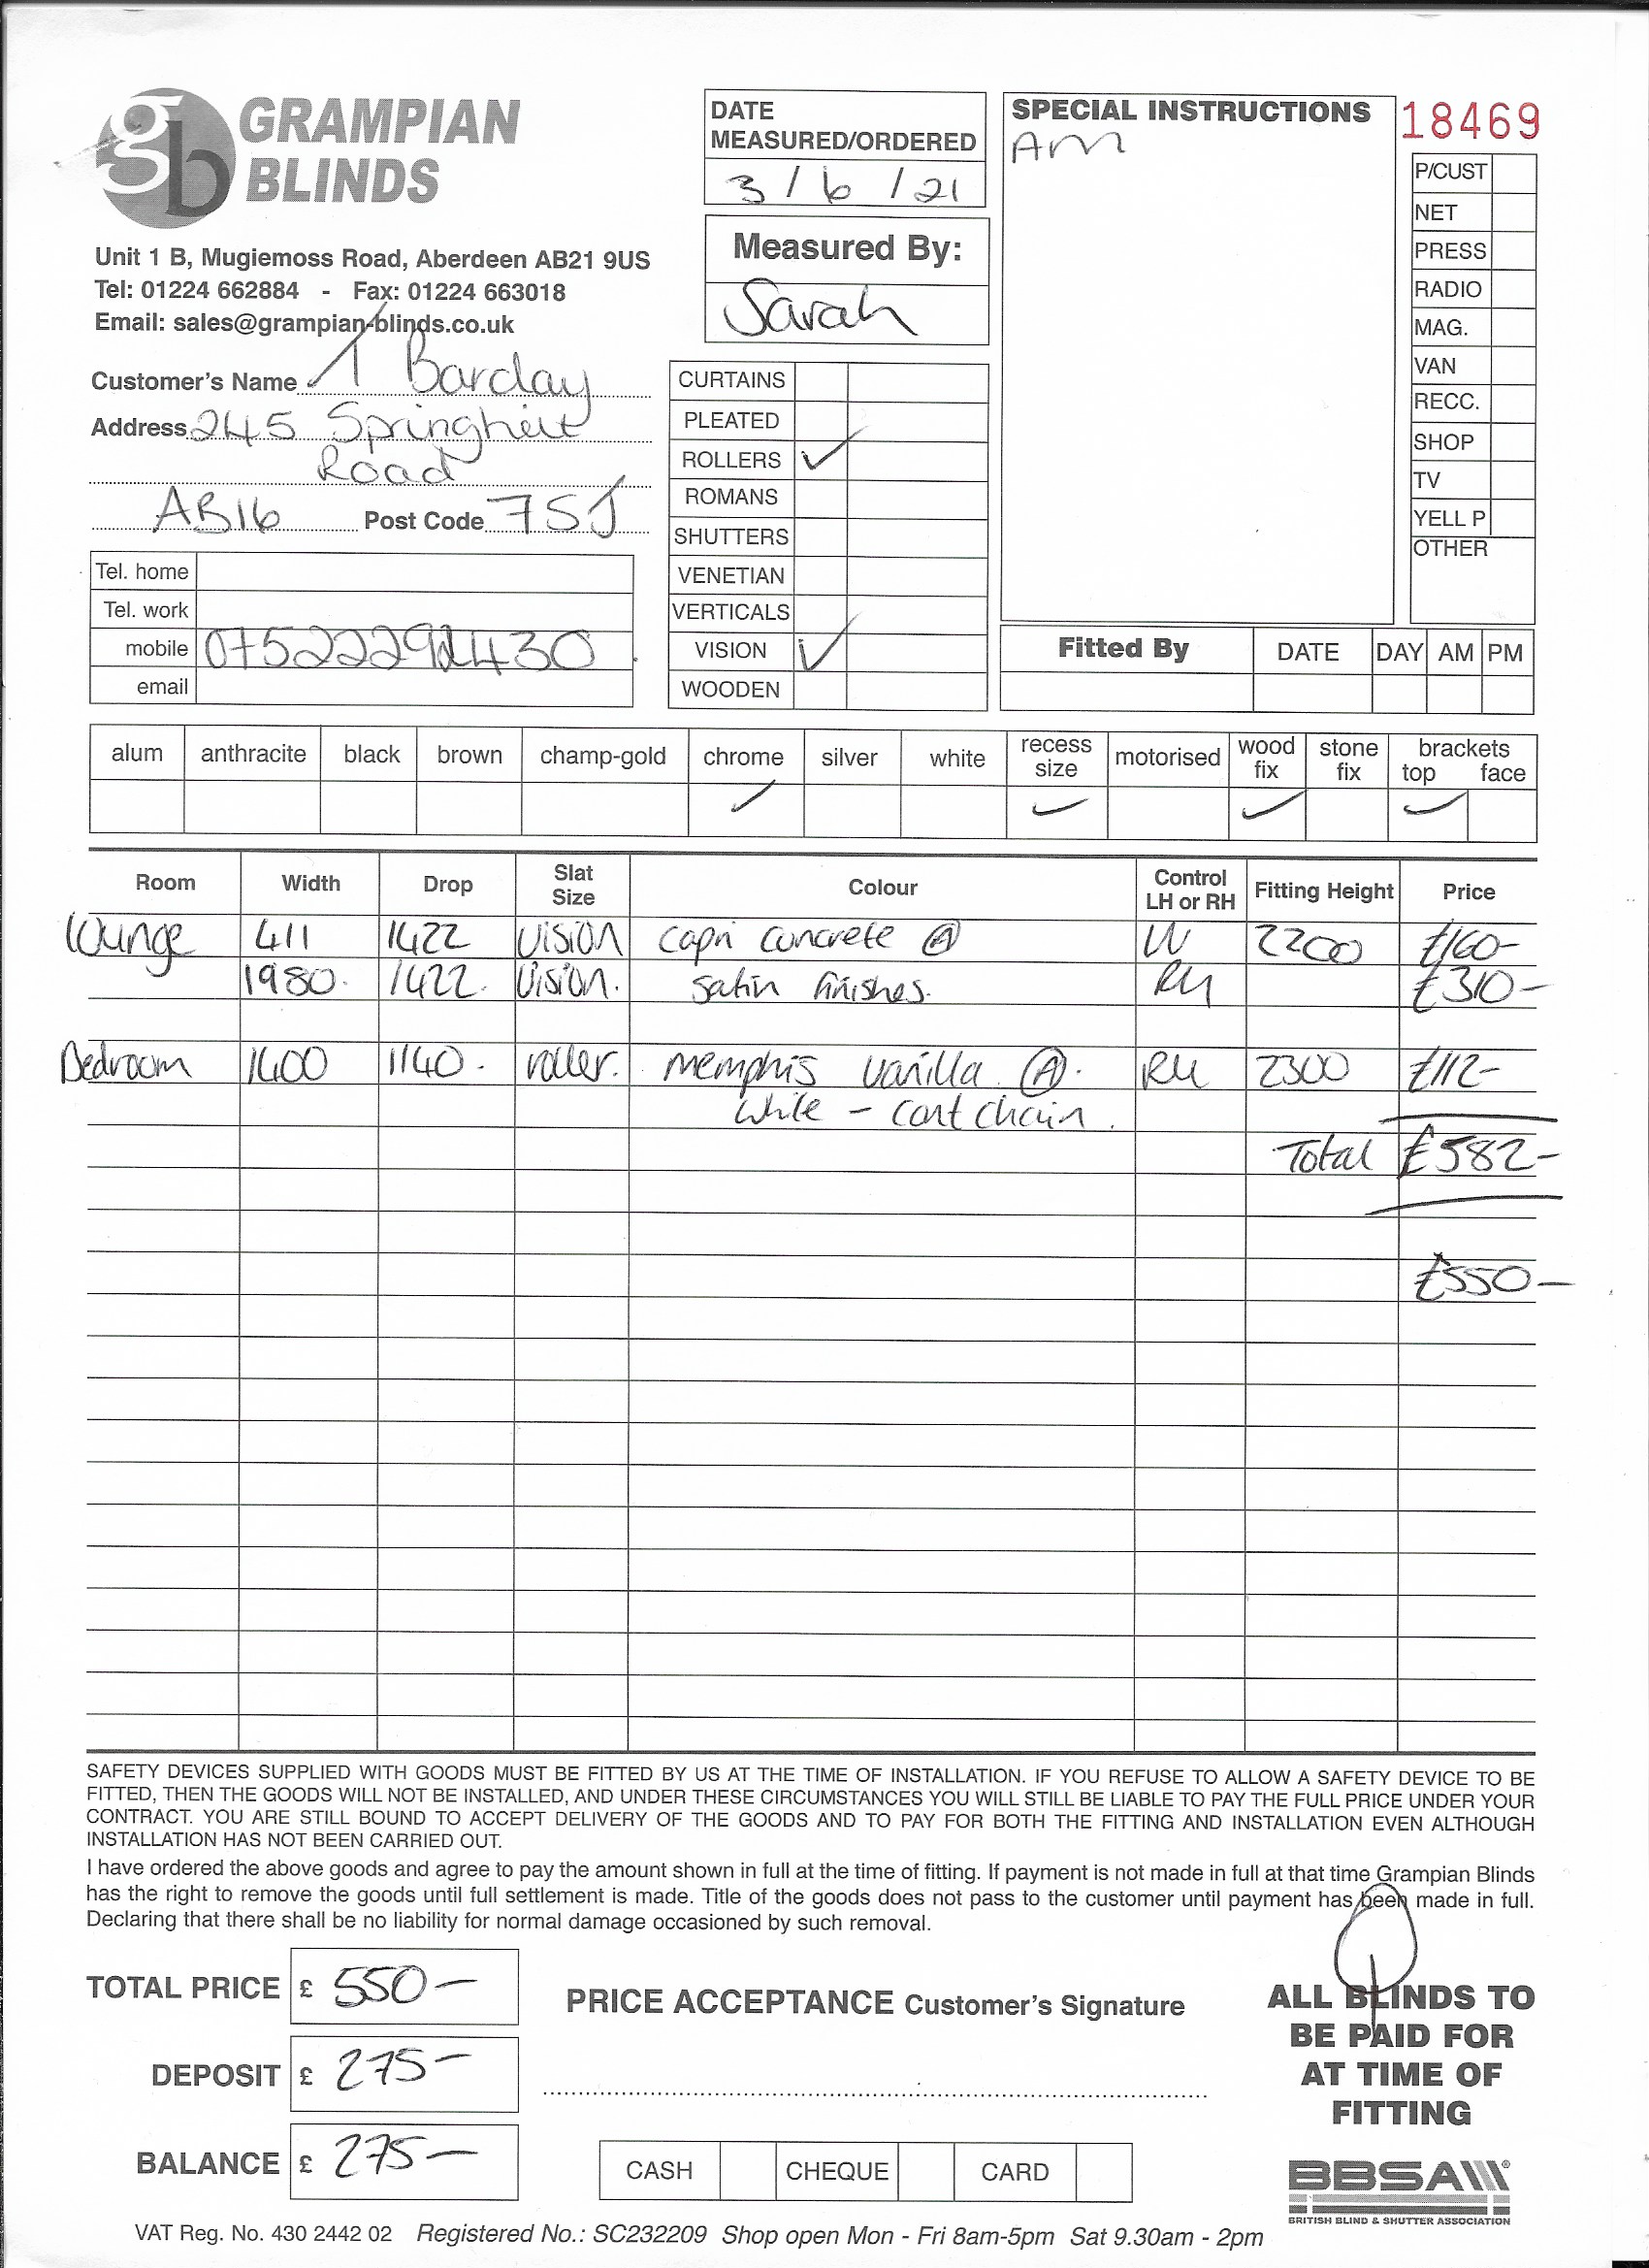 gb GRAMPIAN BLINDS
Unit 1 B, Mugiemoss Road, Aberdeen AB21 9US
Tel: 01224 662884 - Fax: 01224 663018
Email: sales@grampian-blinds.co.uk
Customer's Name T Barclay
Address 245 Springhill
Road
AB16 Post Code 7SJ
Tel. home
Tel. work
mobile
email
DATE
MEASURED/ORDERED
3 / 6 / 21
Measured By:
Sarah
CURTAINS
PLEATED
ROLLERS ✓
ROMANS
SHUTTERS
VENETIAN
VERTICALS
VISION ✓
WOODEN
SPECIAL INSTRUCTIONS
Am
18469
P/CUST
NET
PRESS
RADIO
MAG.
VAN
RECC.
SHOP
TV
YELL P
OTHER
Fitted By DATE DAY AM PM
alum anthracite black brown champ-gold chrome silver white recess size motorised wood fix stone fix brackets top face
✓ ✓ ✓ ✓
Room Width Drop Slat Size Colour Control LH or RH Fitting Height Price
Lounge 411 1422 Vision Capri Concrete Ⓐ 2200 £160-
1980. 1422. Vision. Satin finishes. RH £310-
Bedroom 1400 1140. roller. Memphis Vanilla Ⓐ. RH 2300 £112-
White - cont chain.
Total £582-
£550-
SAFETY DEVICES SUPPLIED WITH GOODS MUST BE FITTED BY US AT THE TIME OF INSTALLATION. IF YOU REFUSE TO ALLOW A SAFETY DEVICE TO BE
FITTED, THEN THE GOODS WILL NOT BE INSTALLED, AND UNDER THESE CIRCUMSTANCES YOU WILL STILL BE LIABLE TO PAY THE FULL PRICE UNDER YOUR
CONTRACT. YOU ARE STILL BOUND TO ACCEPT DELIVERY OF THE GOODS AND TO PAY FOR BOTH THE FITTING AND INSTALLATION EVEN ALTHOUGH
INSTALLATION HAS NOT BEEN CARRIED OUT.
I have ordered the above goods and agree to pay the amount shown in full at the time of fitting. If payment is not made in full at that time Grampian Blinds
has the right to remove the goods until full settlement is made. Title of the goods does not pass to the customer until payment has been made in full.
Declaring that there shall be no liability for normal damage occasioned by such removal.
TOTAL PRICE £ 550-
DEPOSIT £ 275-
BALANCE £ 275-
PRICE ACCEPTANCE Customer's Signature
CASH CHEQUE CARD
ALL BLINDS TO
BE PAID FOR
AT TIME OF
FITTING
BBSA
BRITISH BLIND & SHUTTER ASSOCIATION
VAT Reg. No. 430 2442 02 Registered No.: SC232209 Shop open Mon - Fri 8am-5pm Sat 9.30am - 2pm